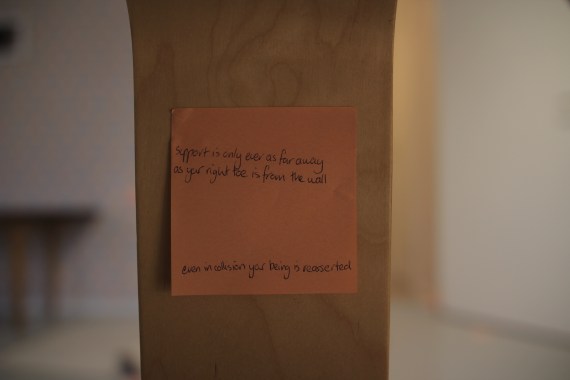 support is only ever as far away
as your right toe is from the wall
even in collision your being is reasserted